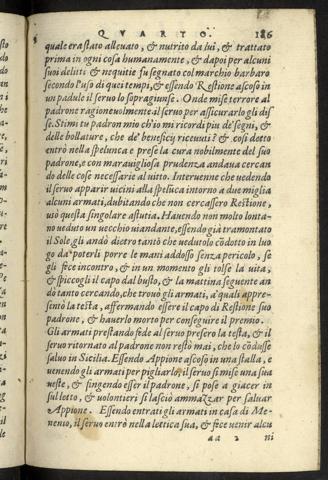 QVARTO. 186
quale era stato alleuato, & nutrito da lui, & trattato
prima in ogni cosa humanamente, & dapoi per alcuni
suoi delitti & nequitie fu segnato col marchio barbaro
secondo l'uso di quei tempi, & essendo Restione ascoso in
un padule il seruo lo sopragiunse. Onde mise terrore al
padrone ragioneuolmente il seruo per assicurarlo gli dis
se. Stimi tu padron mio ch'io mi ricordi piu de segni, &
delle bollature, che de' beneficij riceuuti? & cosi detto
entrò nella spelunca e prese la cura nobilmente del suo
padrone, e con marauigliosa prudenza andaua cercan
do delle cose necessarie al uitto. Interuenne che uedendo
il seruo apparir uicini alla spelũca intorno a due miglia
alcuni armati, dubitando che non cercassero Restione,
usò questa singolare astutia. Hauendo non molto lonta-
no ueduto un uecchio uiandante, essendo già tramontato
il Sole, gli andò dietro tantò che uedutolo cõdotto in luo
go da poterli porre le mani addosso senza pericolo, se
gli fece incontro, & in un momento gli tolse la uita,
& spiccogli il capo dal busto, & la mattina seguente an
dò tanto cercando, che trouo gli armati, a' quali appre-
sentò la testa, affermando essere il capo di Restione suo
padrone, & hauerlo morto per conseguire il premio.
Gli armati prestando fede al seruo presero la testa, & il
seruo ritornato al padrone non restò mai, che lo cõdusse
saluo in Sicilia. Essendo Appione ascoso in una stalla, e
uenendo gli armati per pigliarlo, il seruo si mise una sua
ueste, & singendo esser il padrone, si pose a giacer in
sul letto, & uolontieri si lasciò ammazzar per saluar
Appione. Essendo entrati gli armati in casa di Me-
nenio, il seruo entrò nella lettica sua, & fece uenir alcu
aa 2 ni